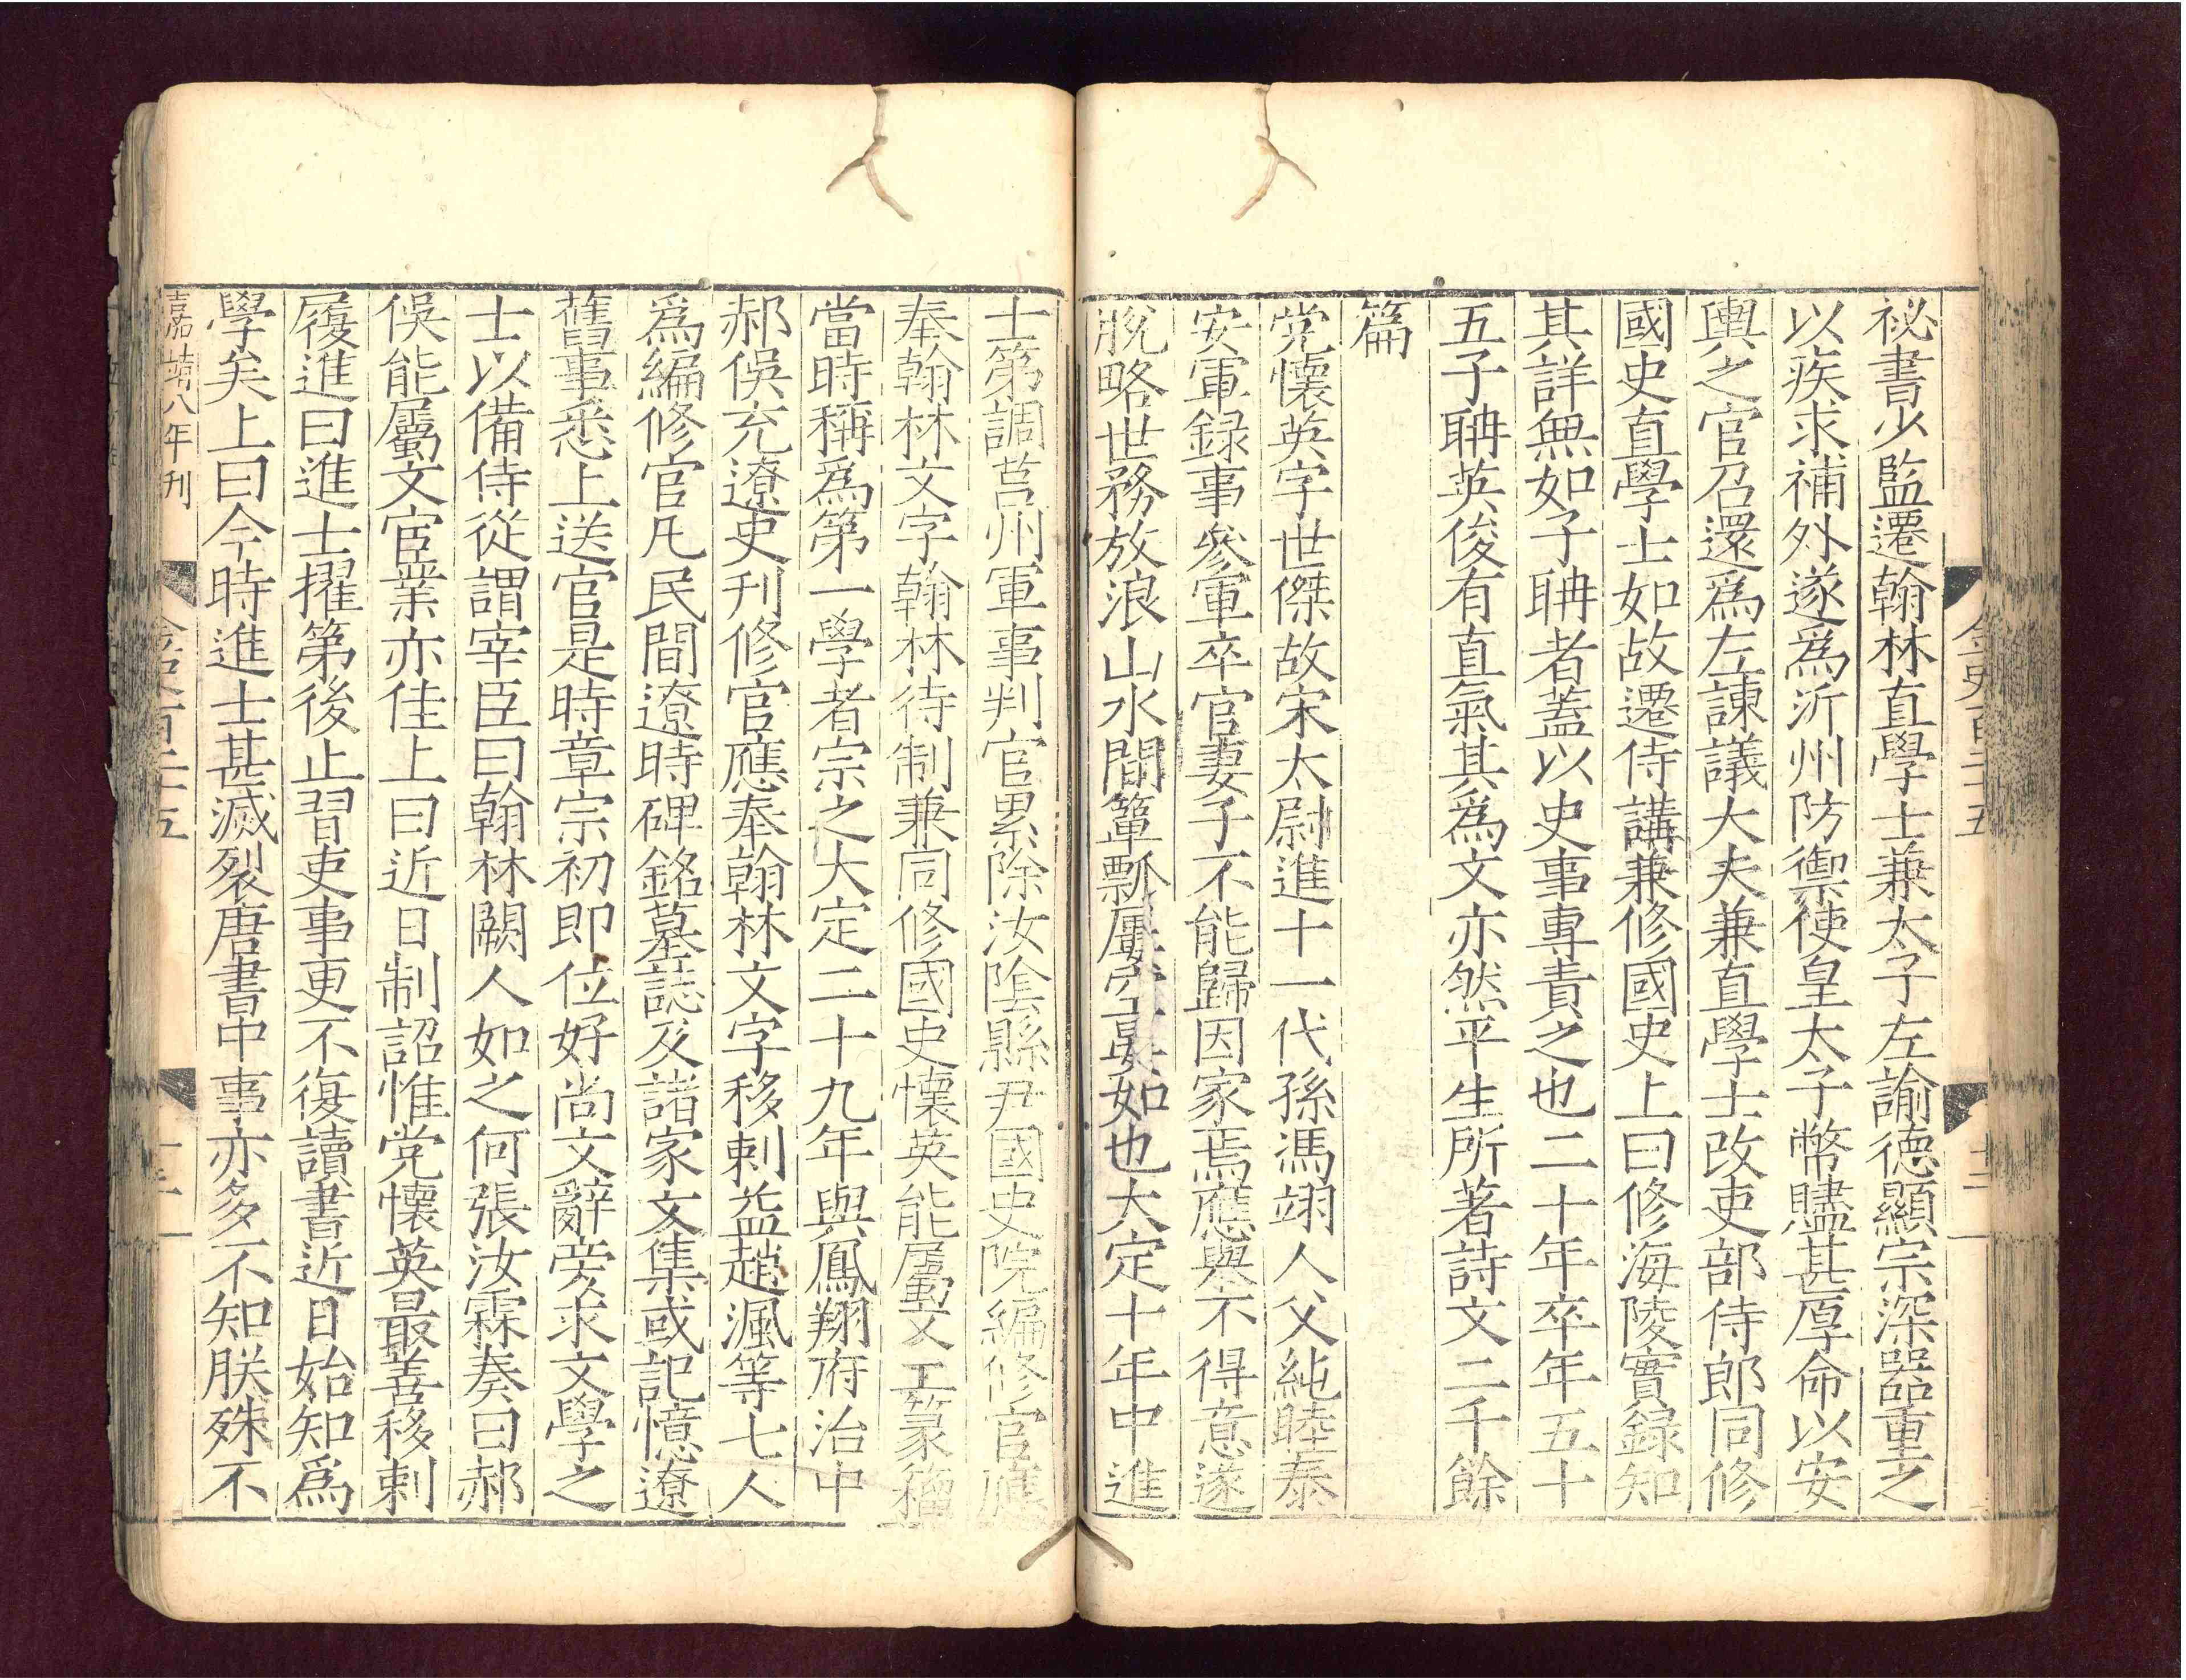 祕書少監遷翰林直學士兼太子左諭德顯宗深器重之
以疾求補外遂爲沂州防禦使皇太子幣贐甚厚命以安
輿之官召還爲左諫議大夫兼直學士改吏部侍郎同修
國史直學士如故遷侍講兼修國史上曰修海陵實録知
其詳無如子聃者蓋以史事專責之也二十年卒年五十
五子聃英俊有直氣其爲文亦然平生所著詩文二千餘
篇
党懷英字世傑故宋太尉進十一代孫馮翊人父純睦泰
安軍録事參軍卒官妻子不能歸因家焉應舉不得意遂
脫略世務放浪山水間簞瓢屢空晏如也大定十年中進
士第調莒州軍事判官累除汝陰縣尹國史院編修官應
奉翰林文字翰林待制兼同修國史懷英能屬文工篆籀
當時稱爲第一學者宗之大定二十九年與鳳翔府治中
郝俁充遼史刊修官應奉翰林文字移剌益趙渢等七人
爲編修官凡民間遼時碑銘墓誌及諸家文集或記憶遼
舊事悉上送官是時章宗初即位好尚文辭旁求文學之
士以備侍從謂宰臣曰翰林闕人如之何張汝霖奏曰郝
俁能屬文宦業亦佳上曰近日制詔惟党懷英最善移剌
履進曰進士擢第後止習吏事更不復讀書近日始知爲
學矣上曰今時進士甚滅裂唐書中事亦多不知朕殊不
嘉靖八年刊
金史百二十五